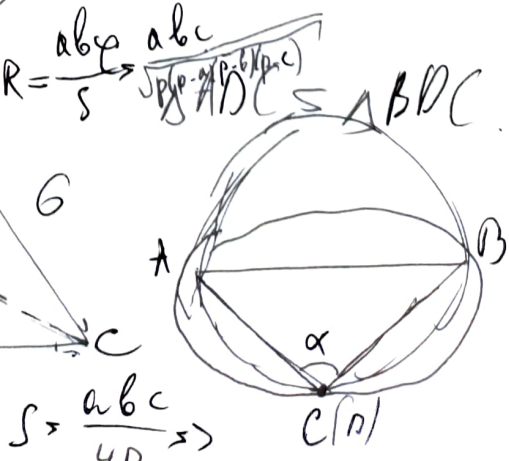 R = abc/S => abc/√p(p-a)(p-b)(p-c)
ADC S △BDC.
6
A
B
C
α
S = abc/4R =>
C(D)